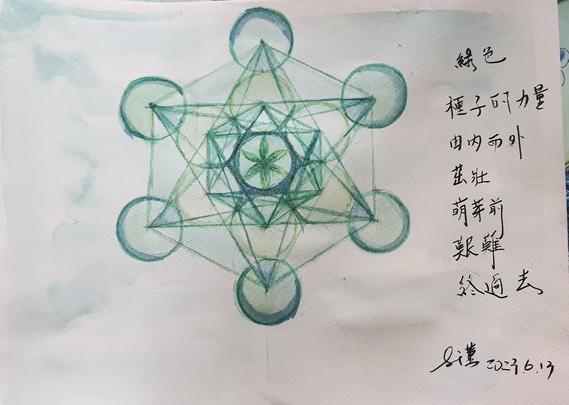 綠色
種子的力量
由內而外
茁壯
萌芽前
艱難
終過去
2023.6.13